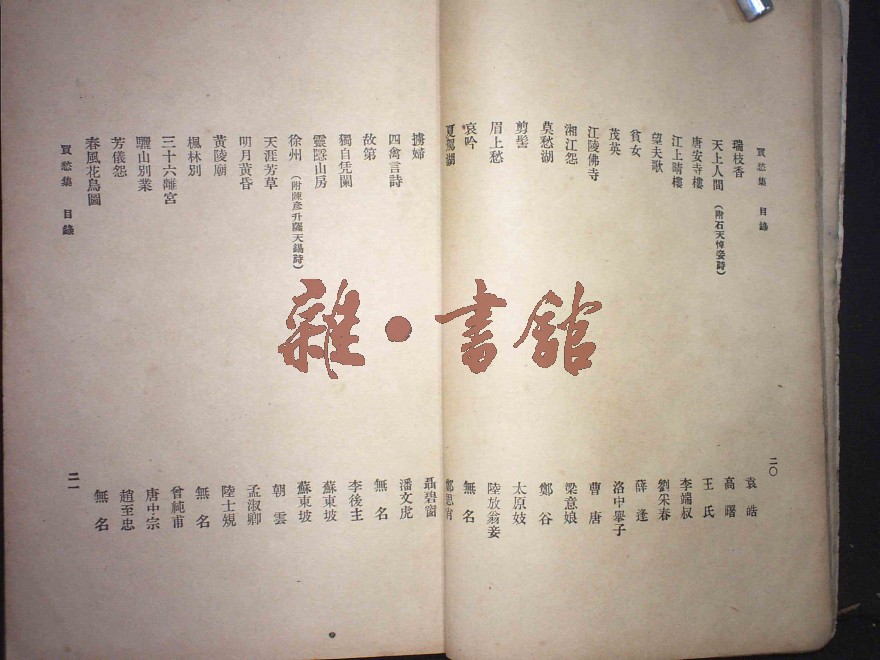 買愁集 目錄
二〇
瑞枝香 袁皓
天上人間（附石天悼姿詩） 高曙
唐安寺樓 王氏
江上晴樓 李端叔
望夫歌 劉采春
貧女 薛逢
茂英 洛中舉子
江陵佛寺 曹唐
湘江怨 梁意娘
莫愁湖 鄭谷
剪髻 太原妓
眉上愁 陸放翁妾
哀吟 無名
夏駕湖 鄭思肖
擄婦 聶碧窗
四禽言詩 潘文虎
故第 無名
獨自凭闌 李後主
靈隱山房 蘇東坡
徐州（附陳彥升薩天錫詩） 蘇東坡
天涯芳草 朝雲
明月黃昏 孟淑卿
黃陵廟 陸士規
楓林別 無名
三十六離宮 曾純甫
驪山別業 唐中宗
芳儀怨 趙至忠
春風花鳥圖 無名
買愁集 目錄
二一
雜·書館